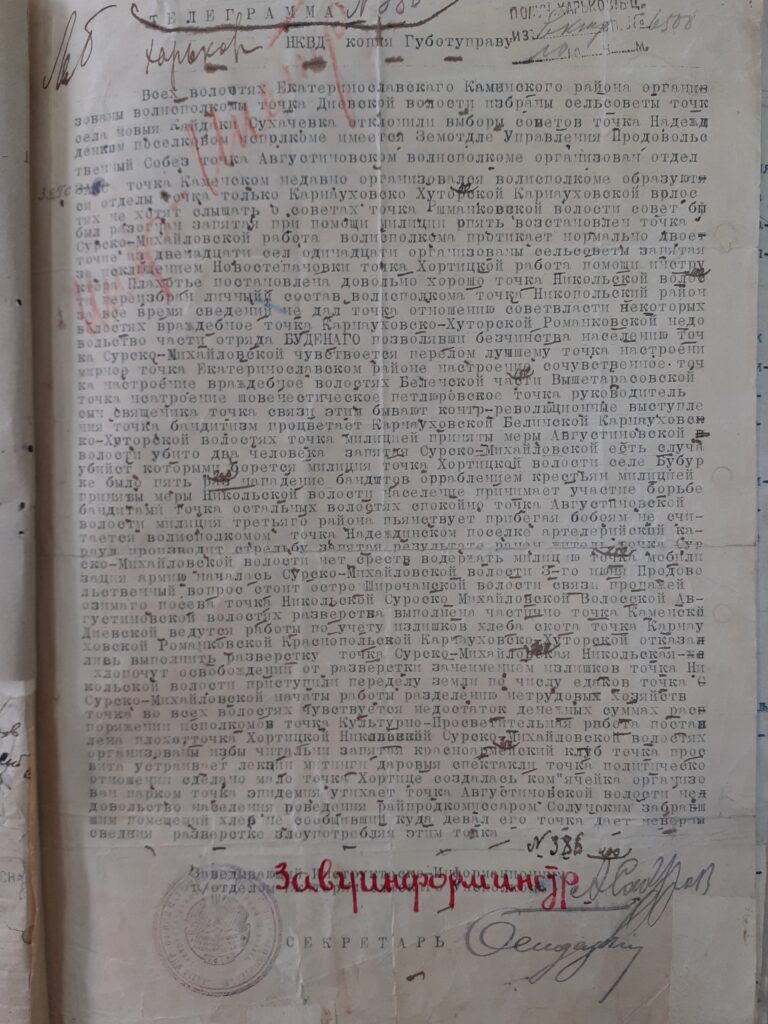 ТЕЛЕГРАММА № 386
харьков НКВД копия Губотуправу
Всех волостях Екатеринославскаго Каминского района органи-
зованы волисполкомы точка Диевской волости избраны сельсоветы точк
села новыя Кайдаки Сухачевка отклонили выборы советов точка Надежд
денком поселковом исполкоме имеется Земотдле Управления Продовольс
твенный Собез точка Августиновском волисполкоме организован отдел
точка Каменском недавно организовался волисполкоме образуют
ся отделы точка только Карнауховско Хуторской Карнауховской врлос
тях не хотят слышать о советах точка Ршманковской волости совет бы
был разогнан запятая при помощи милиции опять возстановлен точка
Сурско-Михайловской работа волисполкома протикает нормально двоет
точие из двенадцати сел одинадцати организованы сельсоветы запятая
за исключением Новостепановки точка Хортицкой работа помощи инстру
ктора Плахотье поставлена довольно хорошо точка Никольской волос
ти переизбран личный состав волисполкома точка Никопольский район
за все время сведений не дал точка отношению советвласти некоторых
волостях враждебное точка Карнауховско-Хуторской Романковской недо
вольство части отряда БУДЕНАГО позволявши безчинства населению точ
ка Сурско-Михайловской чувствоется перелом лучшему точка настроени
мирное точка Екатеринославском районе настроение сочувственное точ
ка настроение враждебное волостях Беленской части Вышетарасовской
точка настроение шовенестическое петлюровское точка руководитель
сын священика точка связи этим бывают контр-революционные выступле
ния точка бандитизм процветает Карнауховской Белинской Карнауховск
ко-Хуторской волостях точка милицией приняты меры Августиновской в
волости убито два человека запятая Сурско-Михайловской есть случа
убийст которыми борется милиция точка Хортицкой волости селе Бубур
ке было пять нападение бандитов ограблением крестьян милицией
приняты меры Никольской волости население принимает участие борьбе
бандитами точка остальных волостях спокойно точка Августиновской
волости милиция третьяго района пьянствует прибегая бобоям не счи-
тается волисполкомом точка Надеждинском поселке артелерийский ка-
раул производит стрельбу запятая результате ранен житель точка Сур
ско-Михайловской волости нет средств водержать милиц точка мобили
зация армию началась Сурско-Михайловской волости 3-го июня Продово
льственный вопрос стоит остро Широчанской волости связи пропажей
озимаго посева точка Никольской Сурско Михайловской Волосской Ав-
густиновской волостях разверстка выполнена частично точка Каменскй
Диевской ведутся работы по учету излишков хлеба скота точка Карнау
ховской Романковской Краснопольской Карнауховско-Хуторской отказан
лись выполнить разверстку точка Сурско-Михайловская Никольская
хлопочут освобождении от разверстки занеимением излишков точка Ни
кольской волости приступили переделу земли по числу едаков точка С
Сурско-Михайловской начаты работы разделению нетрудовых хозяйств
точка во всех волостях чувствуется недостаток денежных суммах расп
поряжении исполкомов точка Культурно-Просветительная работа постав
лена плохо точка Хортицкой Никольский Сурско-Михайловской волостях
организованы избы читальни запятая красноармейский клуб точка прос
вита устраивает лекции митинги даровыя спектакли точка политическо
отношении сделано мало точка Хортице создалась ком"ячейка организо
ван парком точка эпидемия утихает точка Августиновской волости нед
довольство населения поведения райпродкомиссаром Солуцским забравш
шим помещений хлеб не сообщивший куда девал его точка дает неверны
сведния разверстке злоупотребляя этим точка
№ 386
Заведывающий Инструкторско-Информационным
п/отделом
Завуинформинур
СЕКРЕТАРЬ